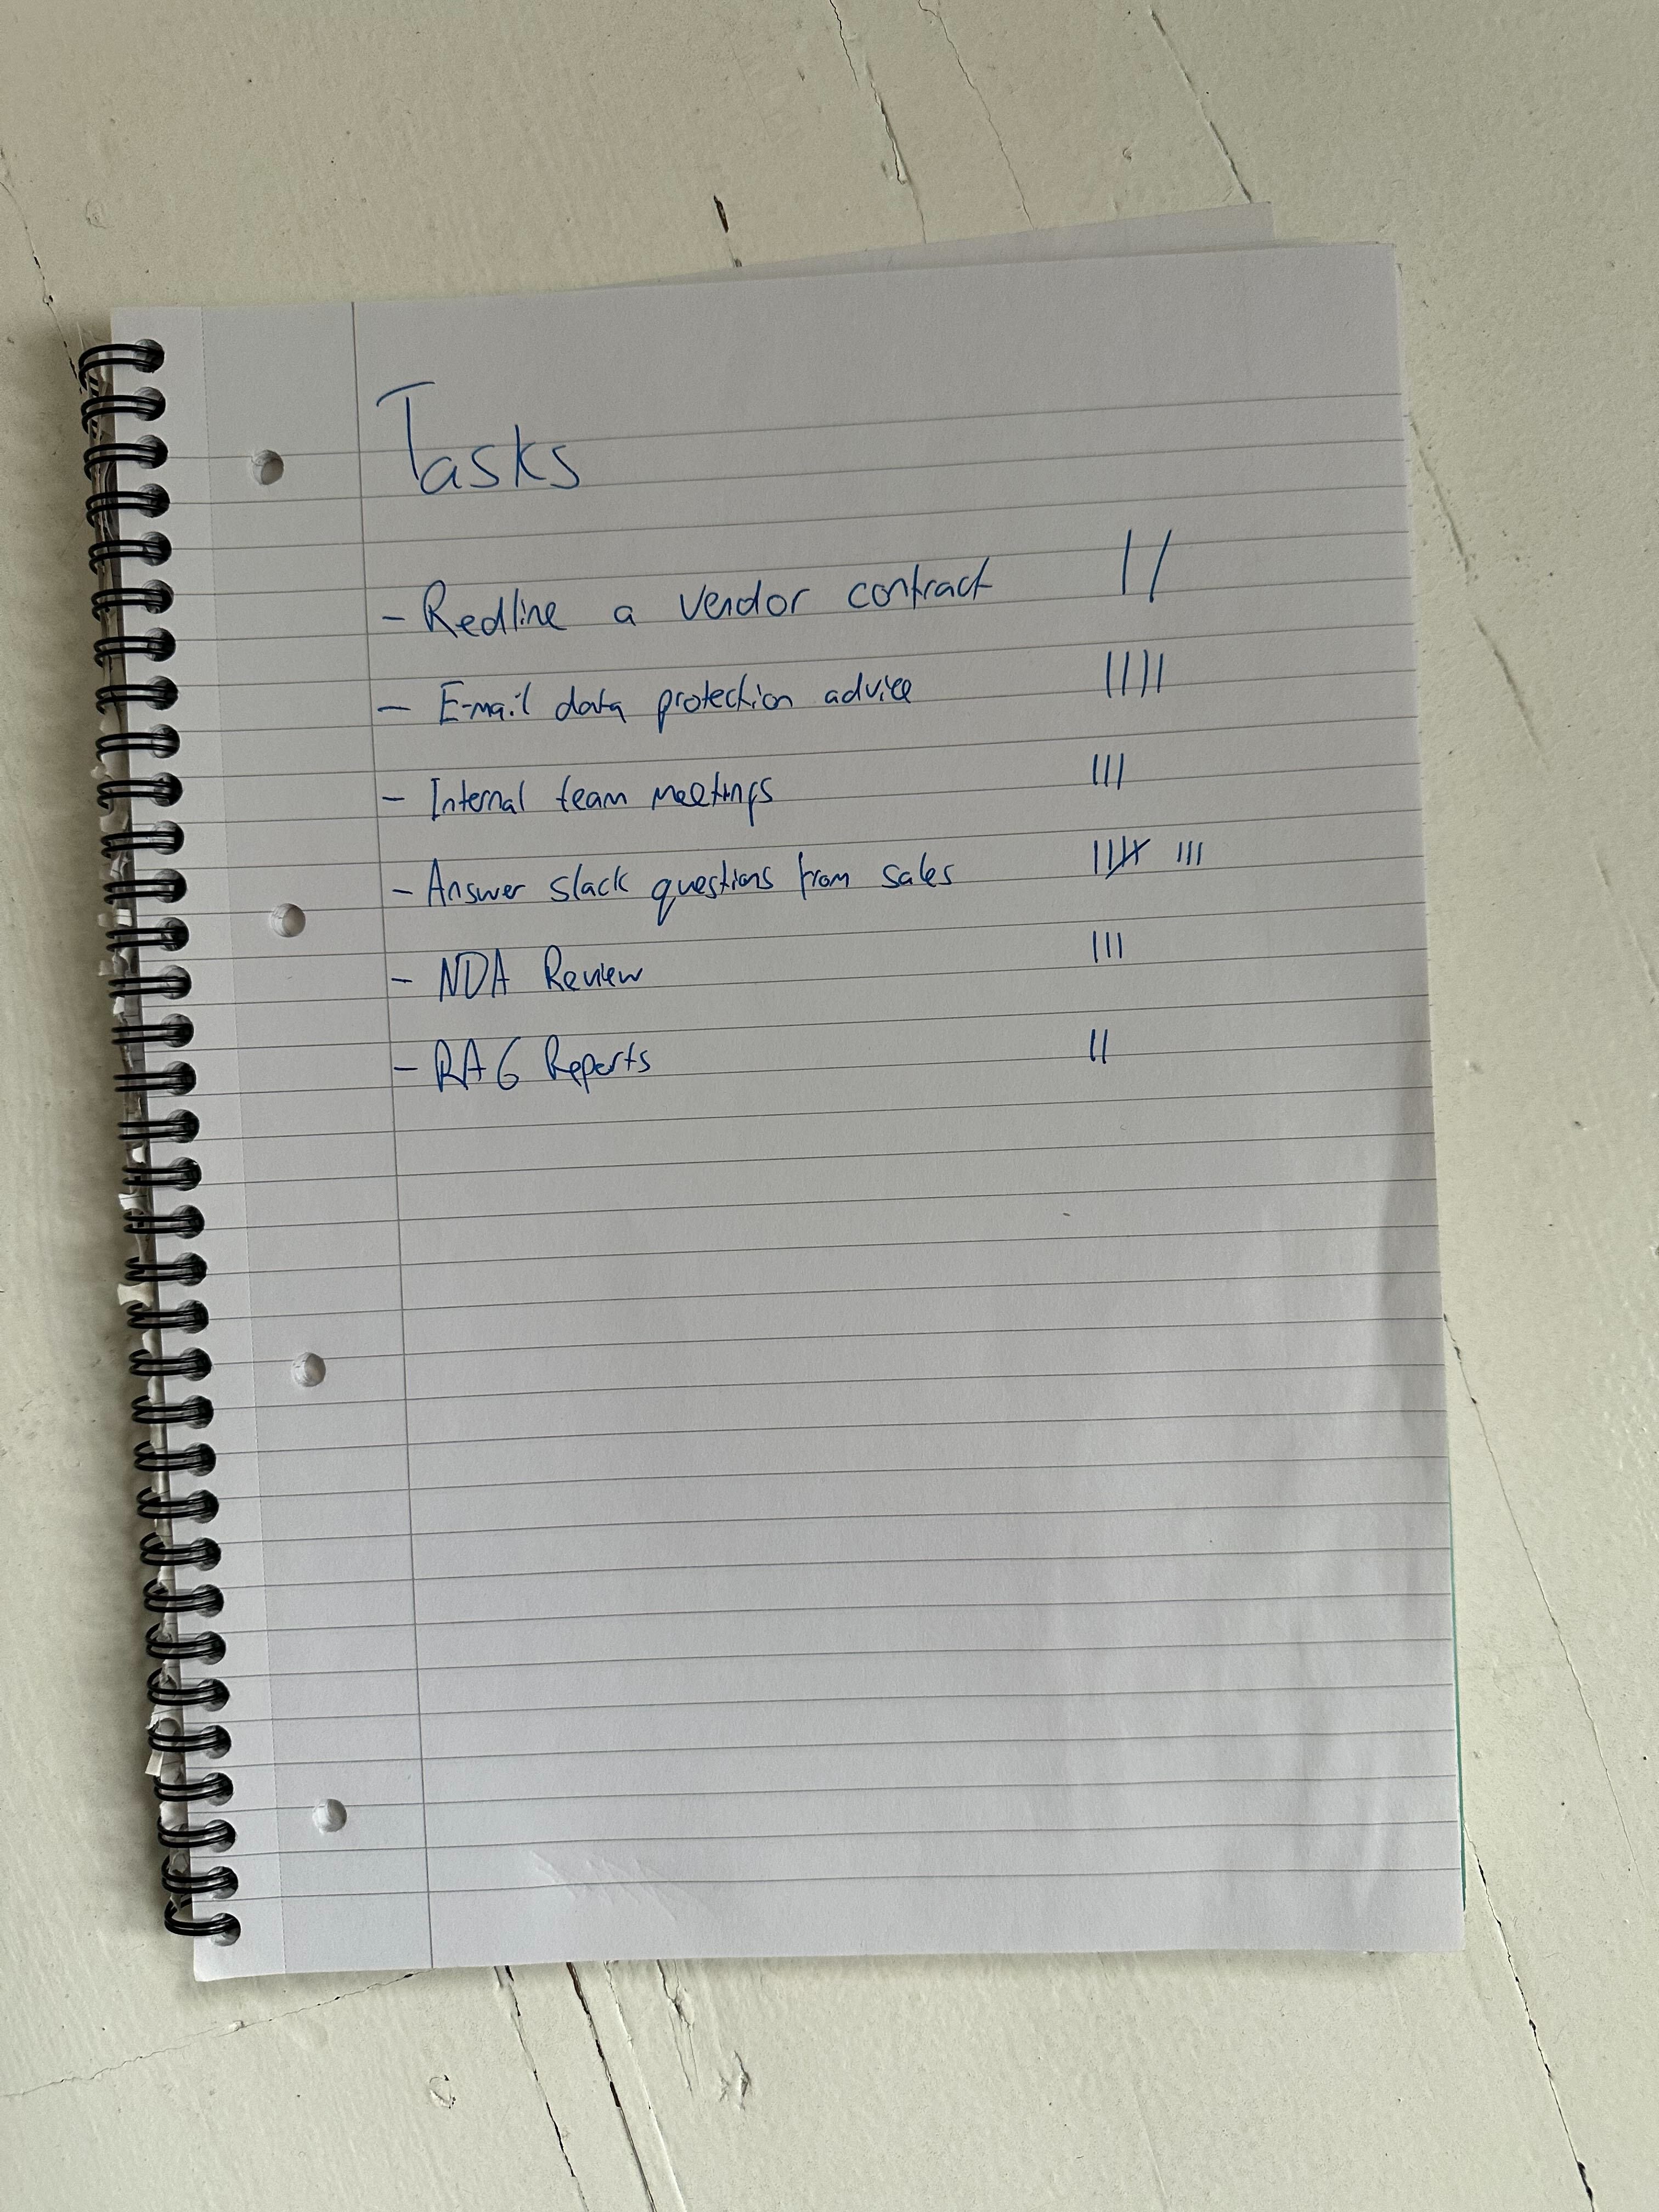 Tasks
- Redline a vendor contract ||
- E-mail data protection advice ||||
- Internal team meetings |||
- Answer slack questions from sales |||| |||
- NDA Review |||
- RAG Reports ||